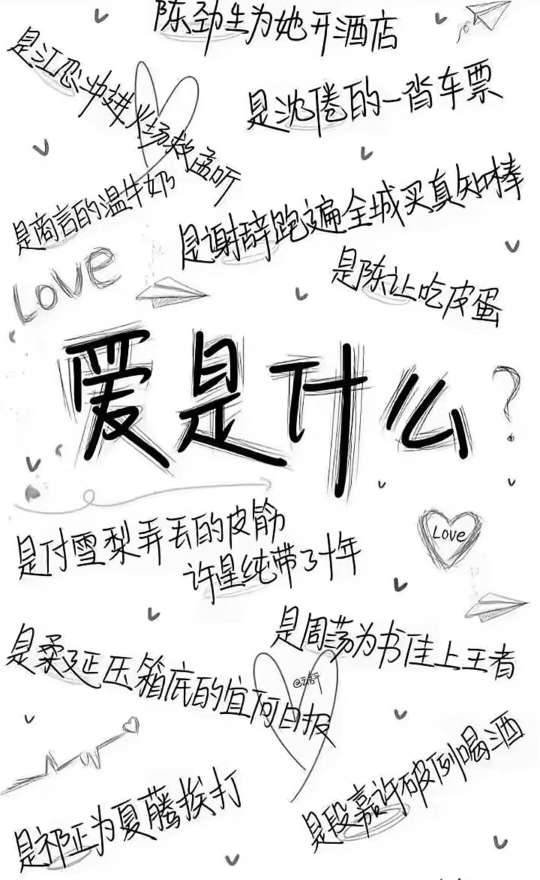 陈劲生为她开酒店
是江忍冲进火场救孟听
是沈倦的一沓车票
是商言的温牛奶
是谢辞跑遍全城买真知棒
Love
是陈让吃皮蛋
爱是什么?
是付雪梨弄丢的皮筋
许星纯带了十年
Love
是周荡为书佳上王者
是柔延压箱底的宜河日报
是祁正为夏藤挨打
是段嘉许破例喝酒